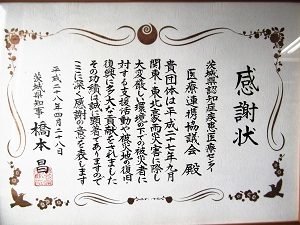 感謝状
茨城県認知症疾患医療センター
医療連携協議会 殿
貴団体は平成二十七年九月
関東・東北豪雨災害に際し
大変厳しい環境の下の被災者に
対する支援活動や被災地の復旧
復興に多大な貢献をされました
その功績は誠に顕著でありますので
ここに深く感謝の意を表します
平成二十八年四月二十八日
茨城県知事 橋本 昌